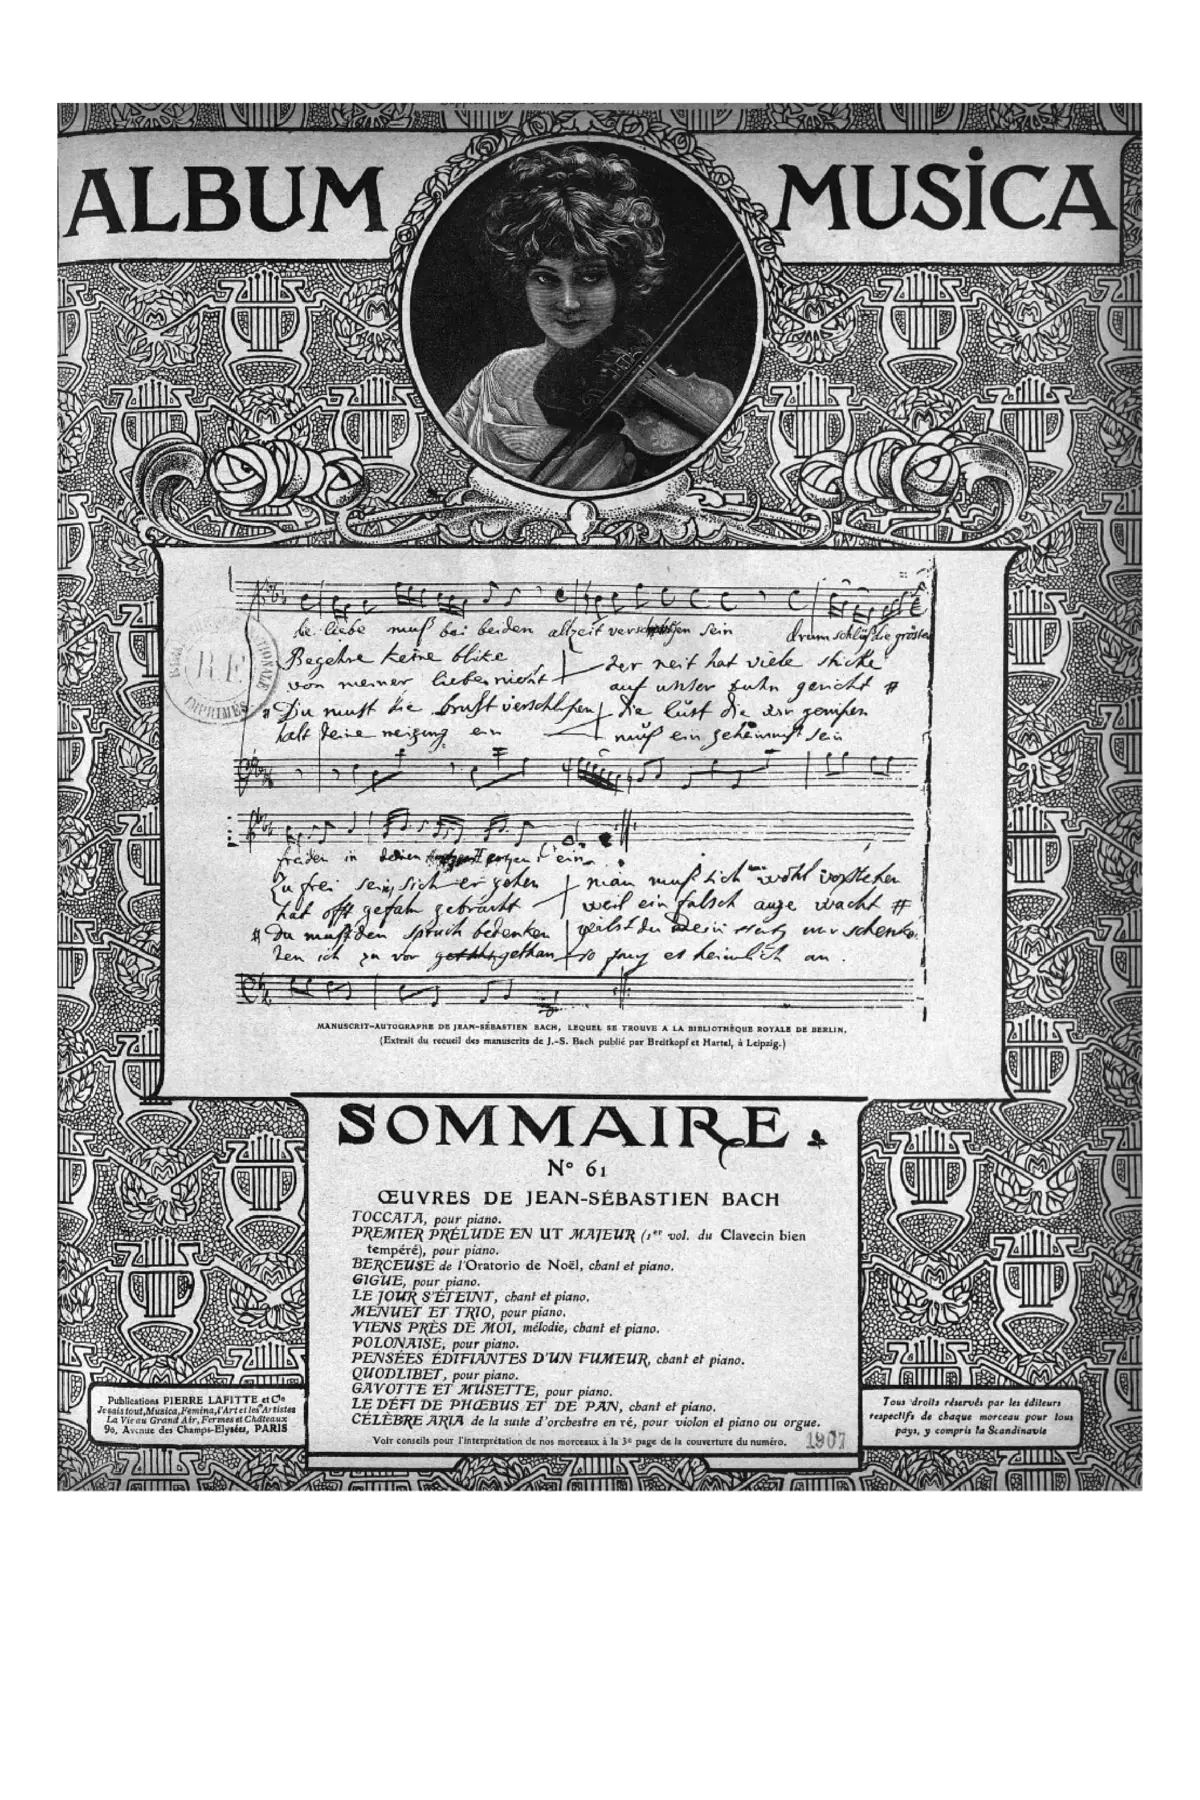 ALBUM MUSICA
BIBLIOTHÈQUE NATIONALE
R F
IMPRIMÉS
liebe muß bei beiden allzeit sein
Begehre keine blike
von meiner liebe nicht
der neit hat viele
auf unser gericht #
# Du must die brust verschließen
die lust die wir
halt deine neigung ein
muß ein sein
freuden in
Zu frei sein, sich
man muß sich wohl
hat offt gefahr gebracht
weil ein falsch auge wacht #
# Du must den spruch bedenken
den ich zu vor gethan
MANUSCRIT-AUTOGRAPHE DE JEAN-SÉBASTIEN BACH, LEQUEL SE TROUVE A LA BIBLIOTHÈQUE ROYALE DE BERLIN.
(Extrait du recueil des manuscrits de J.-S. Bach publié par Breitkopf et Hartel, à Leipzig.)
SOMMAIRE.
N° 61
ŒUVRES DE JEAN-SÉBASTIEN BACH
TOCCATA, pour piano.
PREMIER PRÉLUDE EN UT MAJEUR (1er vol. du Clavecin bien
tempéré), pour piano.
BERCEUSE de l'Oratorio de Noël, chant et piano.
GIGUE, pour piano.
LE JOUR S'ÉTEINT, chant et piano.
MENUET ET TRIO, pour piano.
VIENS PRÈS DE MOI, mélodie, chant et piano.
POLONAISE, pour piano.
PENSÉES ÉDIFIANTES D'UN FUMEUR, chant et piano.
QUODLIBET, pour piano.
GAVOTTE ET MUSETTE, pour piano.
LE DÉFI DE PHŒBUS ET DE PAN, chant et piano.
CÉLÈBRE ARIA de la suite d'orchestre en ré, pour violon et piano ou orgue.
Voir conseils pour l'interprétation de nos morceaux à la 3e page de la couverture du numéro.
1907
Publications PIERRE LAFITTE et Cie
Je sais tout, Musica, Femina, l'Art et les Artistes
La Vie au Grand Air, Fermes et Châteaux
90, Avenue des Champs-Elysées, PARIS
Tous droits réservés par les éditeurs
respectifs de chaque morceau pour tous
pays, y compris la Scandinavie